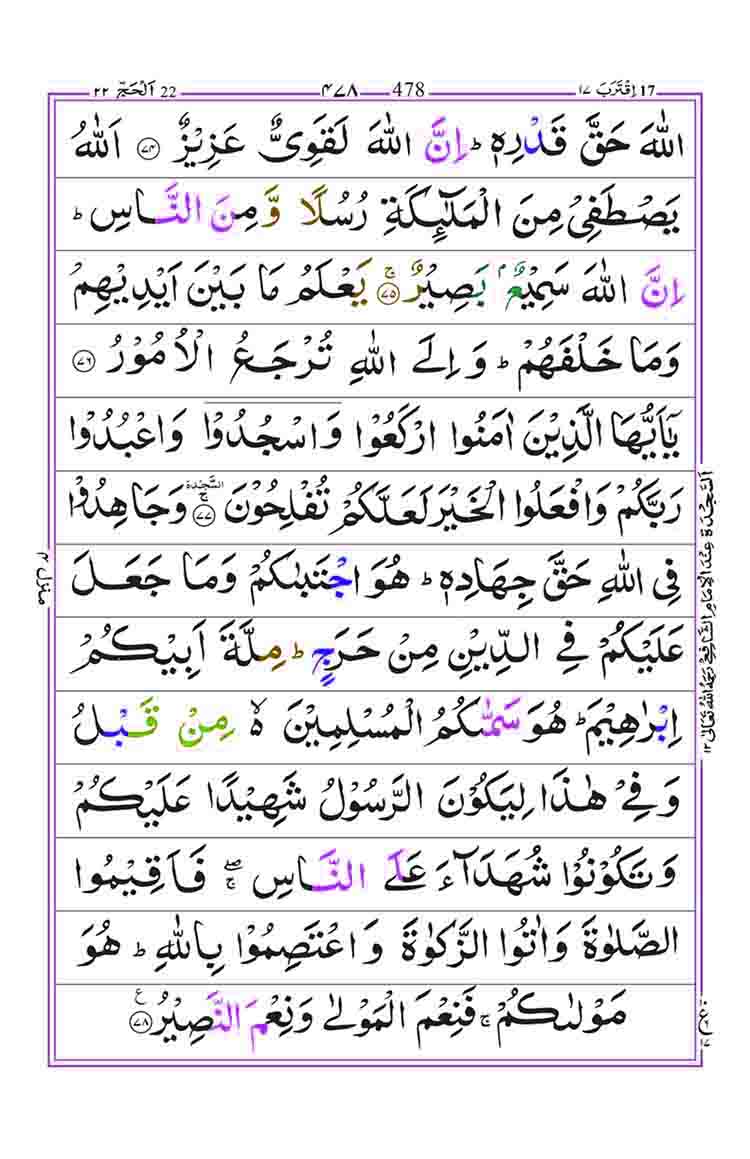 اِقْتَرَبَ ١٧ 17 478 ٤٧٨ اَلْحَجّ ٢٢ 22
اللّٰهَ حَقَّ قَدْرِهٖ ؕ اِنَّ اللّٰهَ لَقَوِىٌّ عَزِيْزٌ ﴿٧٤﴾ اَللّٰهُ
يَصْطَفِىْ مِنَ الْمَلٰٓئِكَةِ رُسُلًا وَّ مِنَ النَّاسِ ؕ
اِنَّ اللّٰهَ سَمِيْعٌۢ بَصِيْرٌ ۚ﴿٧٥﴾ يَعْلَمُ مَا بَيْنَ اَيْدِيْهِمْ
وَمَا خَلْفَهُمْ ؕ وَ اِلَى اللّٰهِ تُرْجَعُ الْاُمُوْرُ ﴿٧٦﴾
يٰۤاَيُّهَا الَّذِيْنَ اٰمَنُوا ارْكَعُوْا وَاسْجُدُوْا وَاعْبُدُوْا
رَبَّكُمْ وَافْعَلُوا الْخَيْرَ لَعَلَّكُمْ تُفْلِحُوْنَ ۚ﴿٧٧﴾ السَّجْدَة وَجَاهِدُوْا
فِى اللّٰهِ حَقَّ جِهَادِهٖ ؕ هُوَ اجْتَبٰىكُمْ وَمَا جَعَلَ
عَلَيْكُمْ فِى الدِّيْنِ مِنْ حَرَجٍ ؕ مِلَّةَ اَبِيْكُمْ
اِبْرٰهِيْمَ ؕ هُوَ سَمّٰىكُمُ الْمُسْلِمِيْنَ ۙ۬ مِنْ قَبْلُ
وَفِىْ هٰذَا لِيَكُوْنَ الرَّسُوْلُ شَهِيْدًا عَلَيْكُمْ
وَتَكُوْنُوْا شُهَدَآءَ عَلَى النَّاسِ ۖۚ فَاَقِيْمُوا
الصَّلٰوةَ وَاٰتُوا الزَّكٰوةَ وَاعْتَصِمُوْا بِاللّٰهِ ؕ هُوَ
مَوْلٰىكُمْ ۚ فَنِعْمَ الْمَوْلٰى وَنِعْمَ النَّصِيْرُ ﴿٧٨﴾ ع
اَلسَّجْدَةُ عِنْدَ الْاِمَامِ الشَّافِعِيِّ رَحِمَهُ اللّٰهُ تَعَالٰى ١٢
منزل ٤